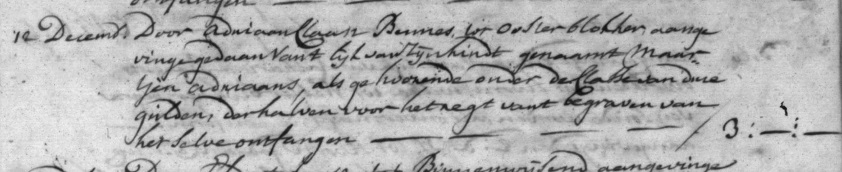 ontfangen
12 Decemb. Door Adriaan Claasz Bennes, tot Ooster blokker, aange
vinge gedaan vant lijk van zijn kindt genaamt Maar-
tjen Adriaans, als gehoorende onder de Classe van drie
guldens, derhalven voor het regt vant begraven van
het selve ontfangen — — — — / 3:—:—
Binnenwijsend aangevinge